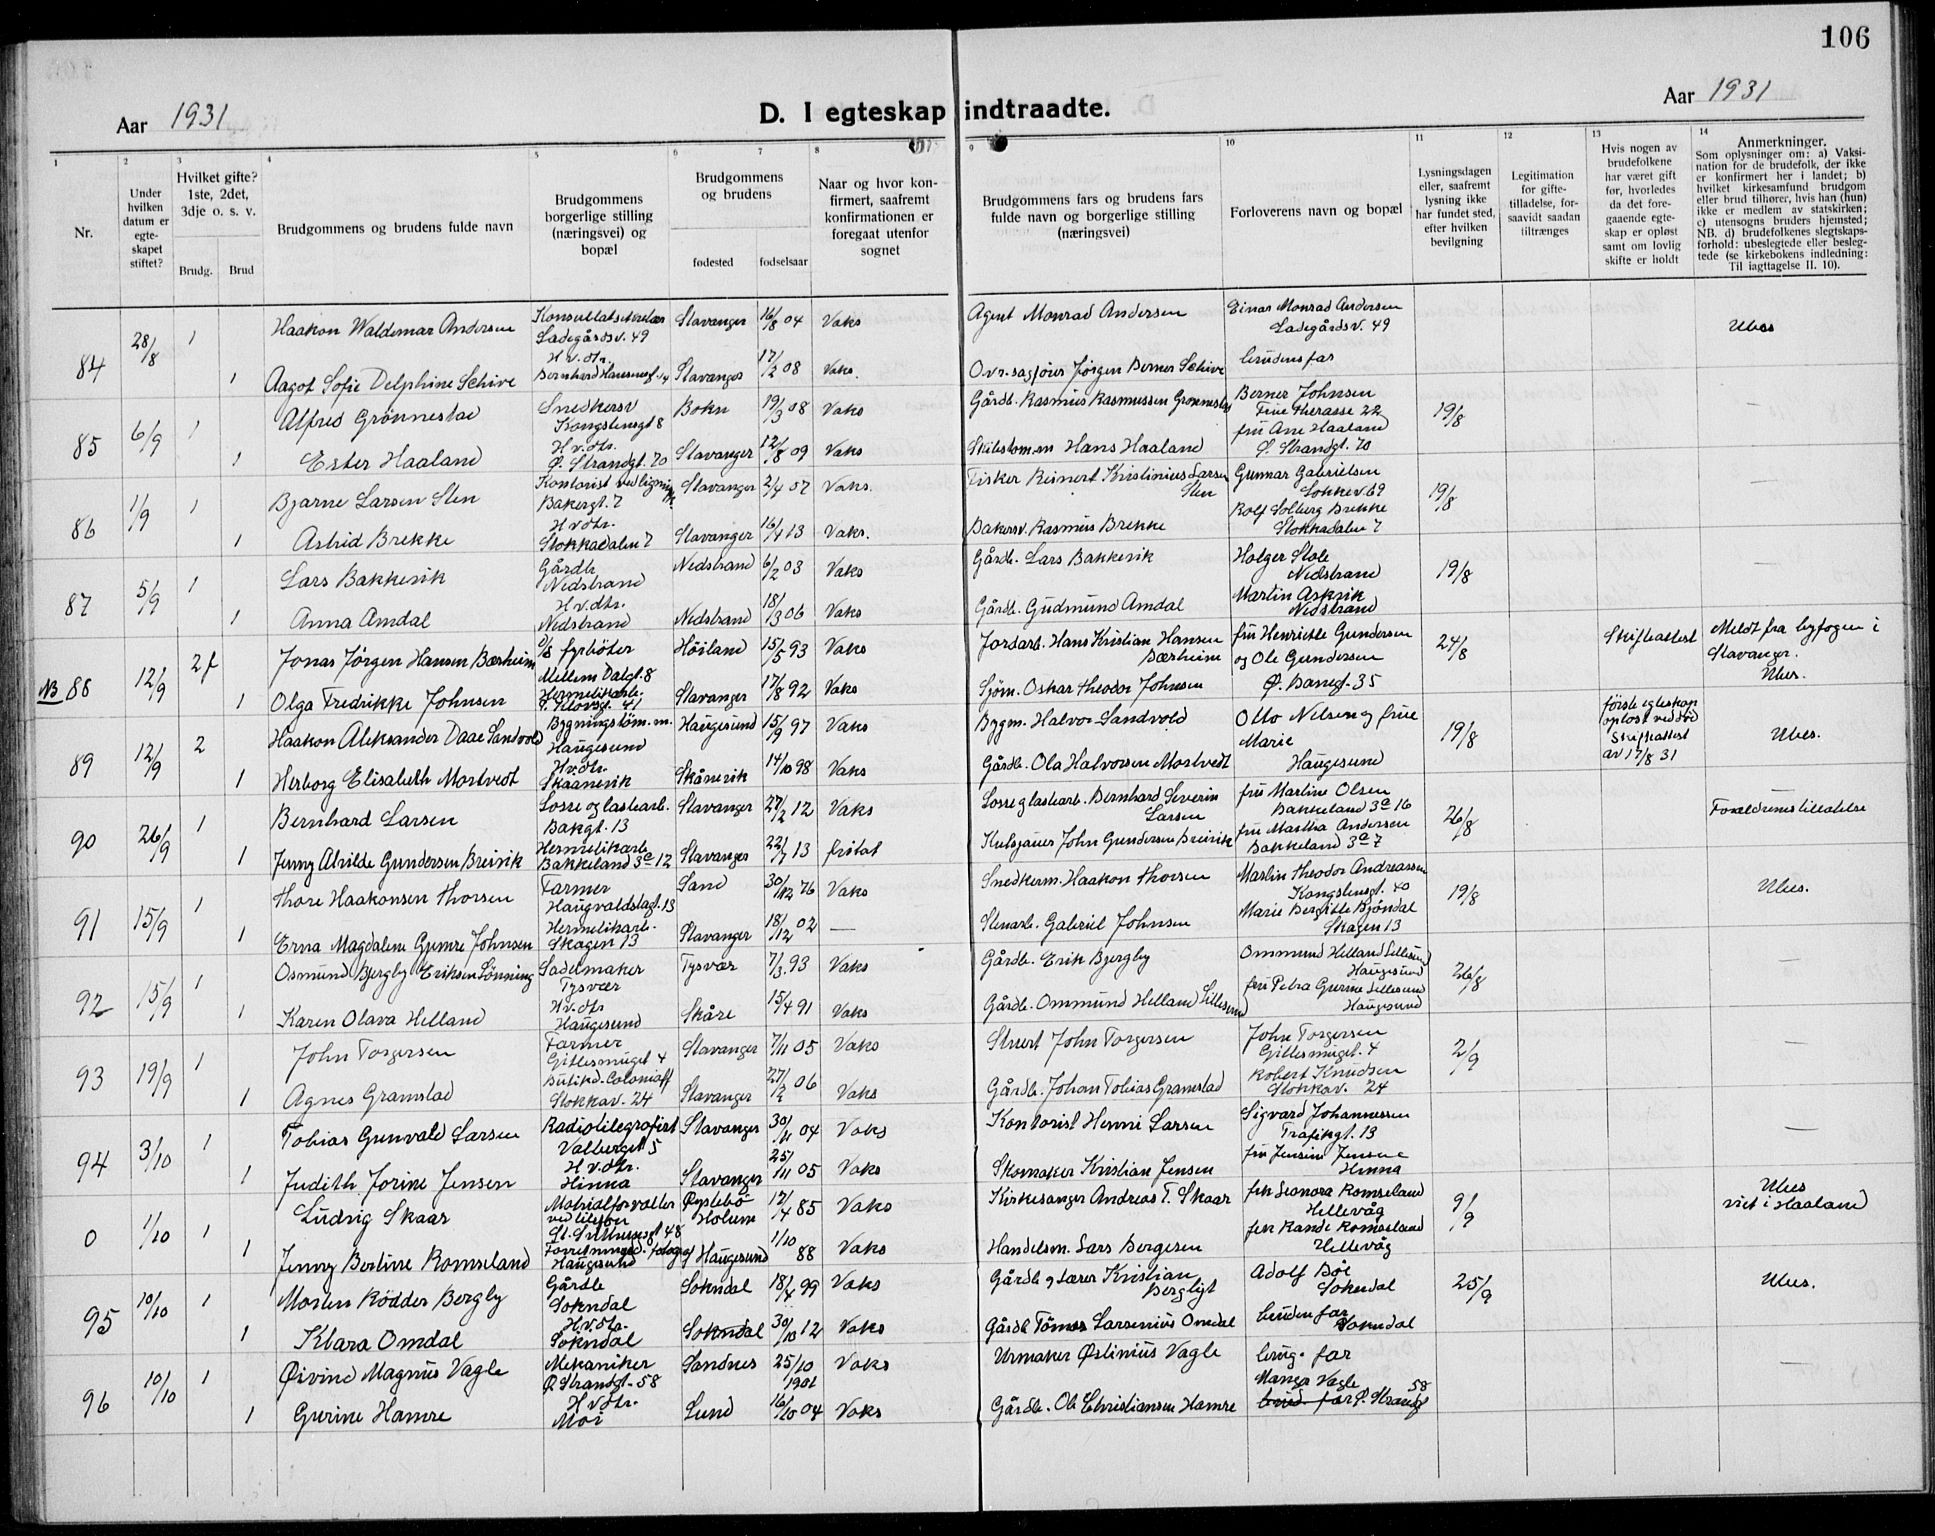 106
Aar 1931
D. I egteskap indtraadte.
Aar 1931
1 2 3 4 5 6 7 8 9 10 11 12 13 14
Nr.
Under hvilken datum er egteskapet stiftet?
Hvilket gifte? 1ste, 2det, 3dje o. s. v.
Brudg. Brud
Brudgommens og brudens fulde navn
Brudgommens borgerlige stilling (næringsvei) og bopæl
Brudgommens og brudens
fødested fødselsaar
Naar og hvor konfirmert, saafremt konfirmationen er foregaat utenfor sognet
Brudgommens fars og brudens fars fulde navn og borgerlige stilling (næringsvei)
Forloverens navn og bopæl
Lysningsdagen eller, saafremt lysning ikke har fundet sted, efter hvilken bevilgning
Legitimation for giftetilladelse, forsaavidt saadan tiltrænges
Hvis nogen av brudefolkene har været gift før, hvorledes da det foregaaende egteskap er opløst samt om lovlig skifte er holdt
Anmerkninger.
Som oplysninger om: a) Vaksination for de brudefolk, der ikke er konfirmert her i landet; b) hvilket kirkesamfund brudgom eller brud tilhører, hvis han (hun) ikke er medlem av statskirken; c) utensogns bruders hjemsted; NB. d) brudefolkenes slegtskapsforhold: ubeslegtede eller beslegtede (se kirkebokens indledning: Til iagttagelse II. 10).
84 28/8 1 Haakon Waldemar Andersen Ladegårdsv. 49 Stavanger 16/8 04 Vaks Agent Monrad Andersen Einar Monrad Andersen Ladegårdsv. 49 Ubes
1 Aagot Sofie Delphine Schive H v. dtr. Stavanger 17/2 08 Vaks. O.r.sagfører Jørgen Berner Schive brudens far
85 6/9 1 Alfred Grønnestad Snedkersv Kongstensgt 8 Bokn 19/3 08 Vaks Gårdb. Rasmus Rasmussen Grønnestad Berner Johnsen Fine Therasse 22 19/8 —
1 Ester Haaland H v. dtr. Ø. Strandgt. 70 Stavanger 12/8 09 Vaks Hans Haaland fru Ane Haaland Ø. Strandgt. 70
86 1/9 1 Bjarne Larsen Sten Kontorist Bakergt. 7 Stavanger 2/4 07 Vaks. Fisker Reinert Kristinius Larsen Sten Gunnar Gabrielsen 19/8 —
1 Astrid Brekke H v dtr. Stokkadalen 7 Stavanger 16/4 13 Vaks. Bakersv. Rasmus Brekke Rolf Solberg Brekke Stokkadalen 7
87 5/9 1 Lars Bakkevik Gårdb Nedstrand Nedstrand 6/2 03 Vaks Gårdb. Lars Bakkevik Holger Stole Nedstrand 19/8 —
1 Anna Amdal H v. dtr. Nedstrand Nedstrand 18/3 06 Vaks Gårdb. Gudmund Amdal Martin Askvik Nedstrand
NB 88 12/9 2 f Jonas Jørgen Hansen Bærheim D/S fyrbøter Mellem Dalgt. 8 Høiland 15/5 93 Vaks Jordarb. Hans Kristian Hansen Bærheim fru Henriette Gundersen 24/8 Skifteattest Meldt fra byfogen i Stavanger.
1 Olga Fredrikke Johnsen Hermetikarb. 41 Stavanger 17/8 92 Vaks Sjøm. Oskar Theodor Johnsen og Ole Gundersen Ø. Banegt. 35 Ubes.
89 12/9 2 Haakon Aleksander Daae Sandvold Bygningstøm. m. Haugesund Haugesund 15/9 97 Vaks Bygm. Halvor Sandvold Otto Nilsen og frue 19/8 første egteskap opløst ved død Skifteattest av 17/8 31 Ubes.
1 Herborg Elisabeth Mostvedt H v. dtr. Skaanevik Skånevik 14/10 98 Vaks Gårdb. Ola Halvorsen Mostvedt Marie Haugesund
90 26/9 1 Bernhard Larsen Losse og lastearb. Bakgt. 13 Stavanger 27/2 12 Vaks Losse og lastearb. Bernhard Severin Larsen fru Martine Olsen Bakkeland 3a 16 26/8 Foreldrenes tillatelse
1 Jenny Alvilde Gundersen Breivik Hermetikarb Bakkeland 3a 12 Stavanger 22/7 13 fritat John Gundersen Breivik fru Martha Andersen Bakkeland 3a 7
91 15/9 1 Thore Haakonsen Thorsen Farmer Haugvaldstagt. 13 Sand 30/12 76 Vaks Snedkerm. Haakon Thorsen Martin Theodor Andreassen Kongstensgt. 40 19/8 Ubes.
1 Erna Magdalene Gurine Johnsen Hermetikarb. Skagen 13 Stavanger 18/12 02 — Stenarb. Gabriel Johnsen Marie Bergitte Bjøndal Skagen 13
92 15/9 1 Osmund Bjergby Eriksen Lønning Sadelmaker Tysvær Tysvær 7/3 93 Vaks Gårdb. Erik Bjergby Ommund Helland Lillesund Haugesund 26/8 —
1 Karen Olava Helland H v. dtr Haugesund Skåre 15/4 91 Vaks Gårdb. Ommund Helland Lillesund fru Petra Gurine Lillesund Haugesund
93 19/9 1 John Torgersen Farmer Stavanger 7/11 05 Vaks Stuert John Torgersen John Torgersen 2/9 —
1 Agnes Gramstad Stokkav. 24 Stavanger 27/2 06 Vaks Gårdb. Johan Tobias Gramstad Robert Knudsen Stokkav. 24
94 3/10 1 Tobias Gunvald Larsen Radiotelegrafist Valberget 5 Stavanger 30/11 04 Vaks Kontorist Henri Larsen Sigvard Johannessen Trafikgt. 13 —
1 Judith Jorine Jensen H v. dtr. Hinna Stavanger 25/11 05 Vaks Skomaker Kristian Jensen fru Jensine Jensen Hinna
0 1/10 1 Ludvig Skaar Matrialforvalter Øyslebø Holum 12/4 85 Vaks Kirkesanger Andreas T. Skaar frk Leonora Romseland Hellevåg 9/9 Ubes viet i Haaland
1 Jenny Bertine Romseland Haugesund Haugesund 1/10 88 Vaks Handelsm. Lars Bergesen frk Randi Romseland Hellevåg
95 10/10 1 Morten Rødder Bergby Gårdb Sokndal Sokndal 18/4 99 Vaks Gårdb og lærer Kristian Adolf Bøe Sokndal 25/9 Ubes.
1 Klara Omdal H. v. dtr. Sokndal Sokndal 30/10 12 Vaks Gårdb Tomas Larsenius Omdal brudens far Sokndal
96 10/10 1 Øivind Magnus Vagle Mekaniker Ø Strandgt. 58 Sandnes 25/10 1901 Vaks Urmaker Østinius Vagle brug. far —
1 Gurine Hamre H v dtr. Moi Lund 16/10 04 Vaks Gårdb. Ole Christiansen Hamre Manga Vagle Ø. Strandgt 58